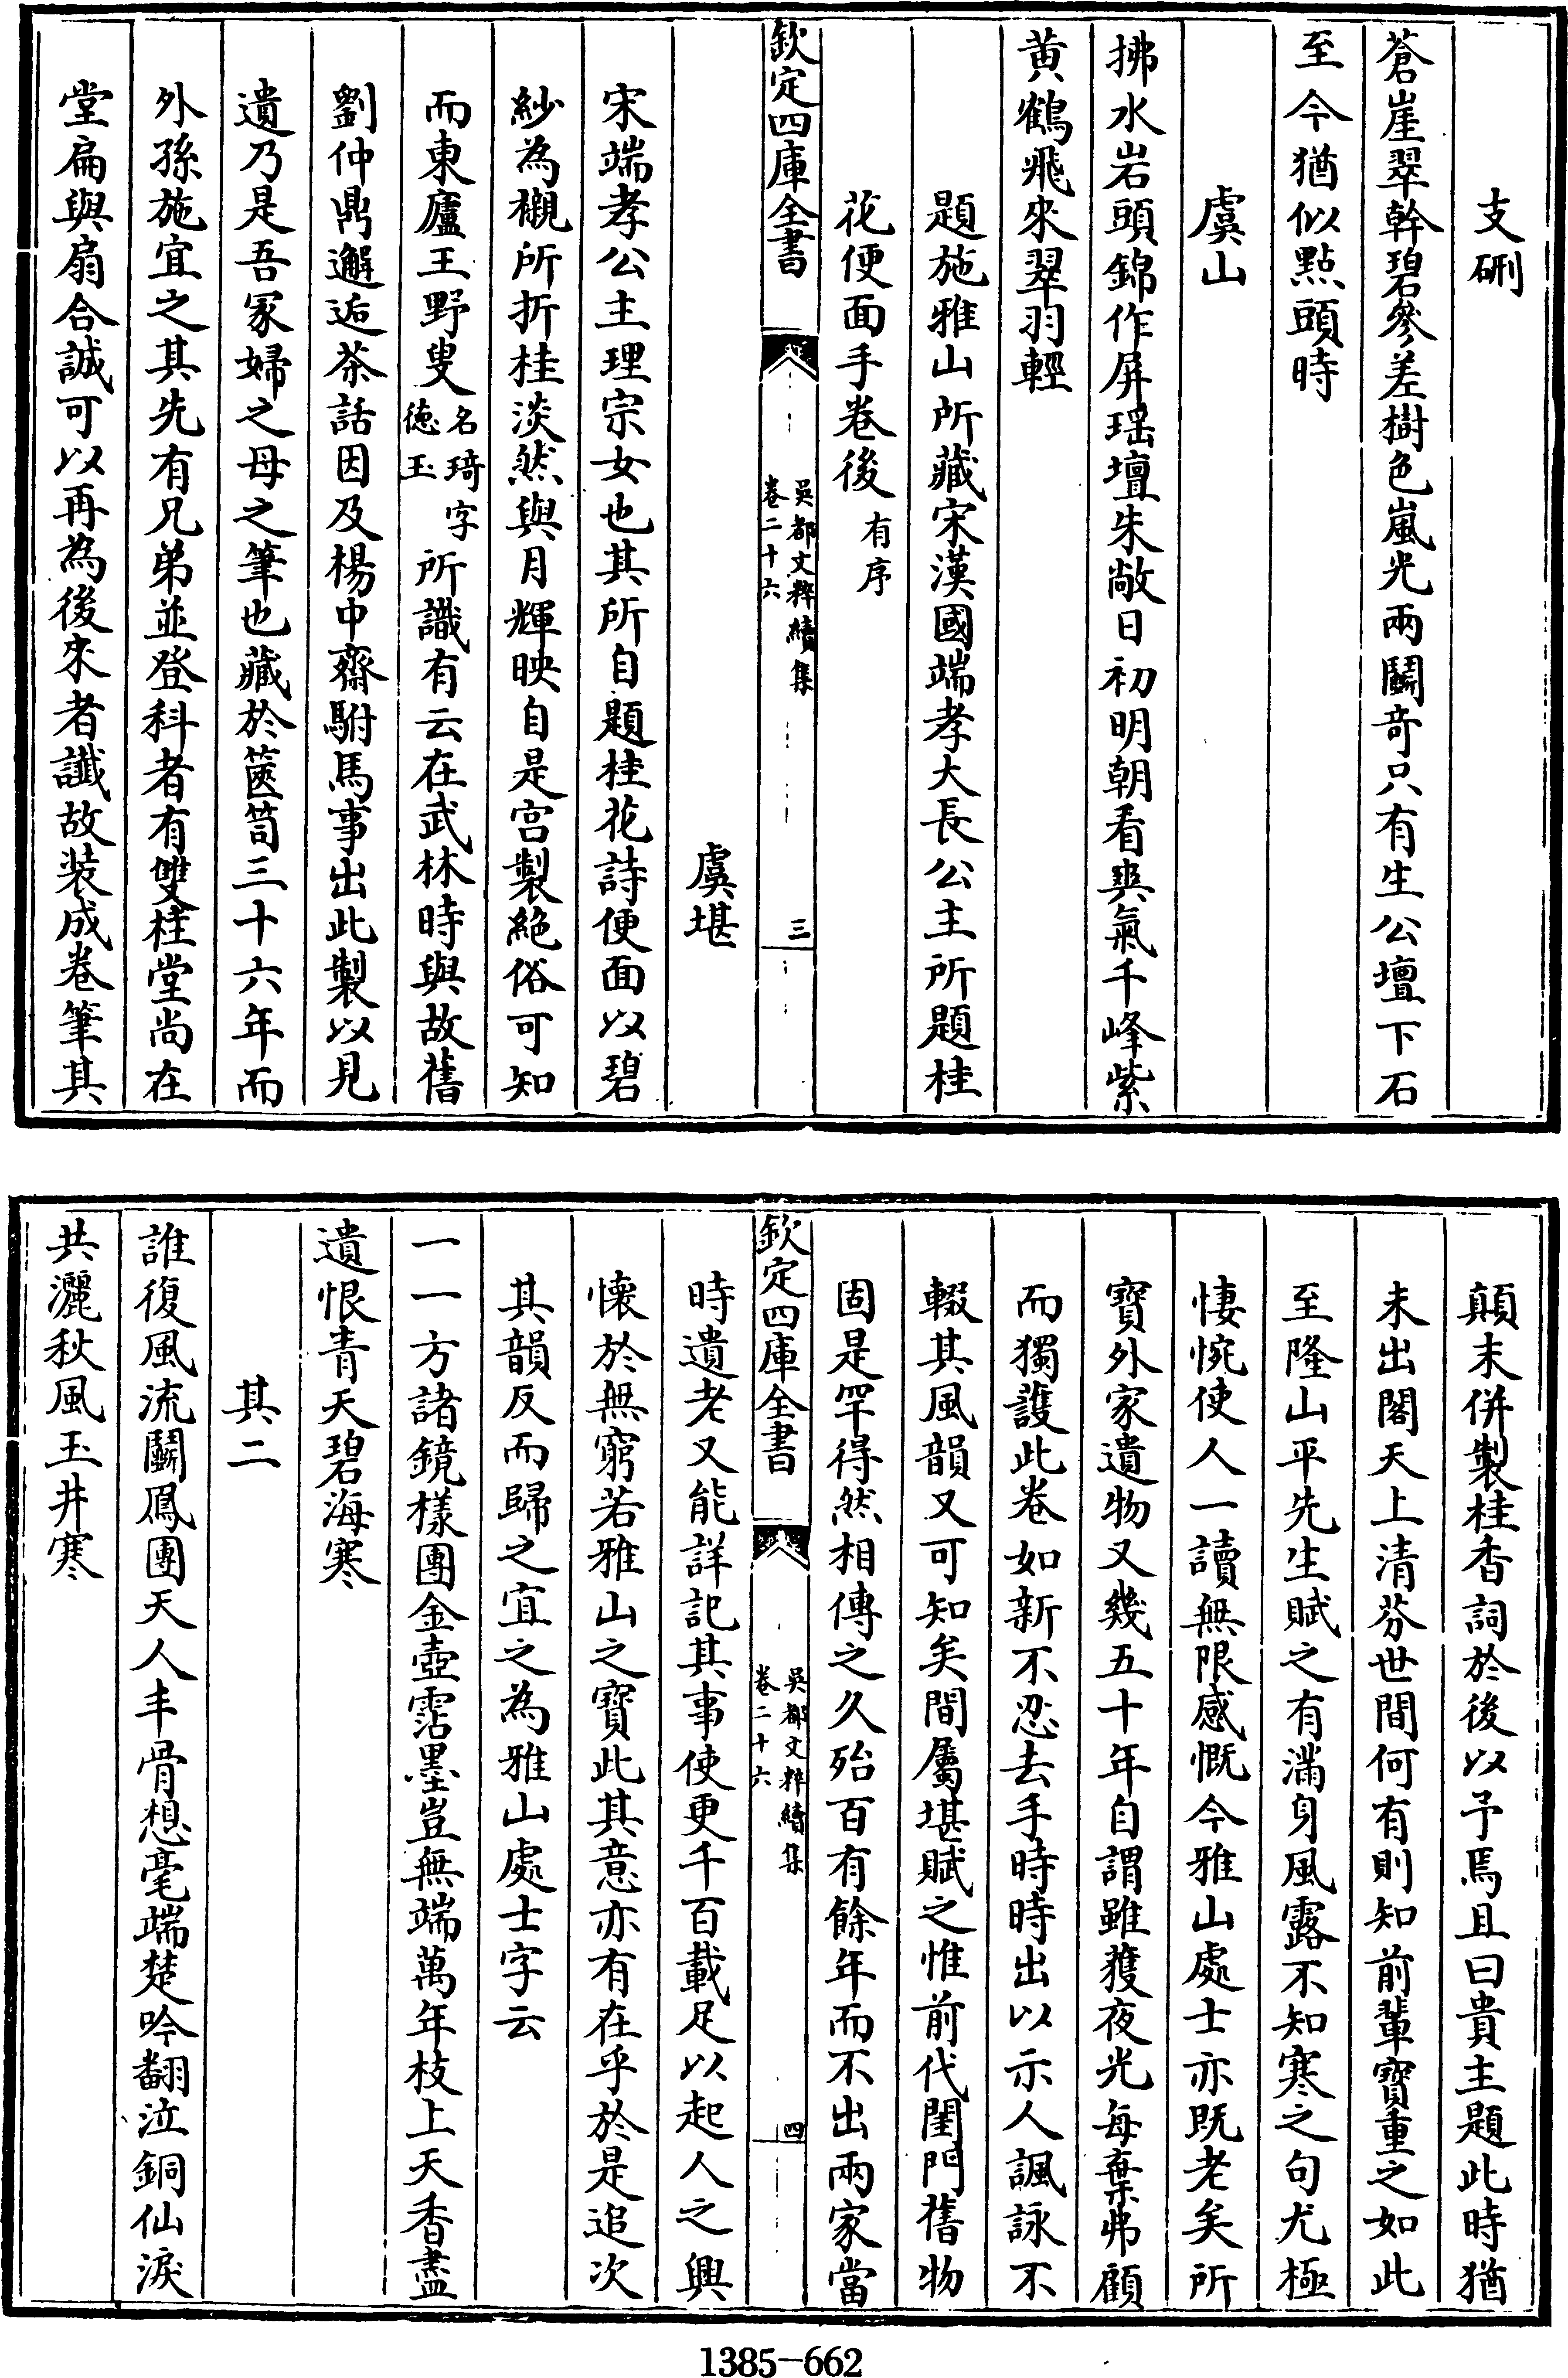 支硎
蒼崖翠幹碧參差樹色嵐光兩鬬竒只有生公壇下石
至今猶似點頭時
虞山
拂水岩頭錦作屏瑶壇朱敞日初明明朝看爽氣千峰紫
黄鶴飛來翠羽輕
題施雅山所藏宋漢國端孝大長公主所題桂
花便面手卷後有序
欽定四庫全書
吳都文粹續集
卷二十六
三
虞堪
宋端孝公主理宗女也其所自題桂花詩便面以碧
紗為櫬所折桂淡然與月輝映自是宫製絶俗可知
而東廬王野叟名琦字德玉所識有云在武林時與故舊
劉仲鼎邂逅茶話因及楊中齋駙馬事出此製以見
遺乃是吾冢婦之母之筆也藏於篋笥三十六年而
外孫施宜之其先有兄弟並登科者有雙桂堂尚在
堂扁與扇合誠可以再為後來者讖故装成卷筆其
顛末併製桂香詞於後以予焉且曰貴主題此時猶
未出閣天上清芬世間何有則知前輩寶重之如此
至隆山平先生賦之有滿身風露不知寒之句尤極
悽惋使人一讀無限感慨今雅山處士亦既老矣所
寶外家遺物又幾五十年自謂雖獲夜光每棄弗顧
而獨護此卷如新不忍去手時時出以示人諷詠不
輟其風韻又可知矣間屬堪賦之惟前代閨門舊物
固是罕得然相傳之久殆百有餘年而不出兩家當
欽定四庫全書
吳都文粹續集
卷二十六
四
時遺老又能詳記其事使更千百載足以起人之興
懐於無窮若雅山之寶此其意亦有在乎於是追次
其韻反而歸之宜之為雅山處士字云
一一方諸鏡様團金壺霑墨豈無端萬年枝上天香盡
遺恨青天碧海寒
其二
誰復風流鬬鳳團天人丰骨想毫端楚吟翻泣銅仙淚
共灑秋風玉井寒
1385-662